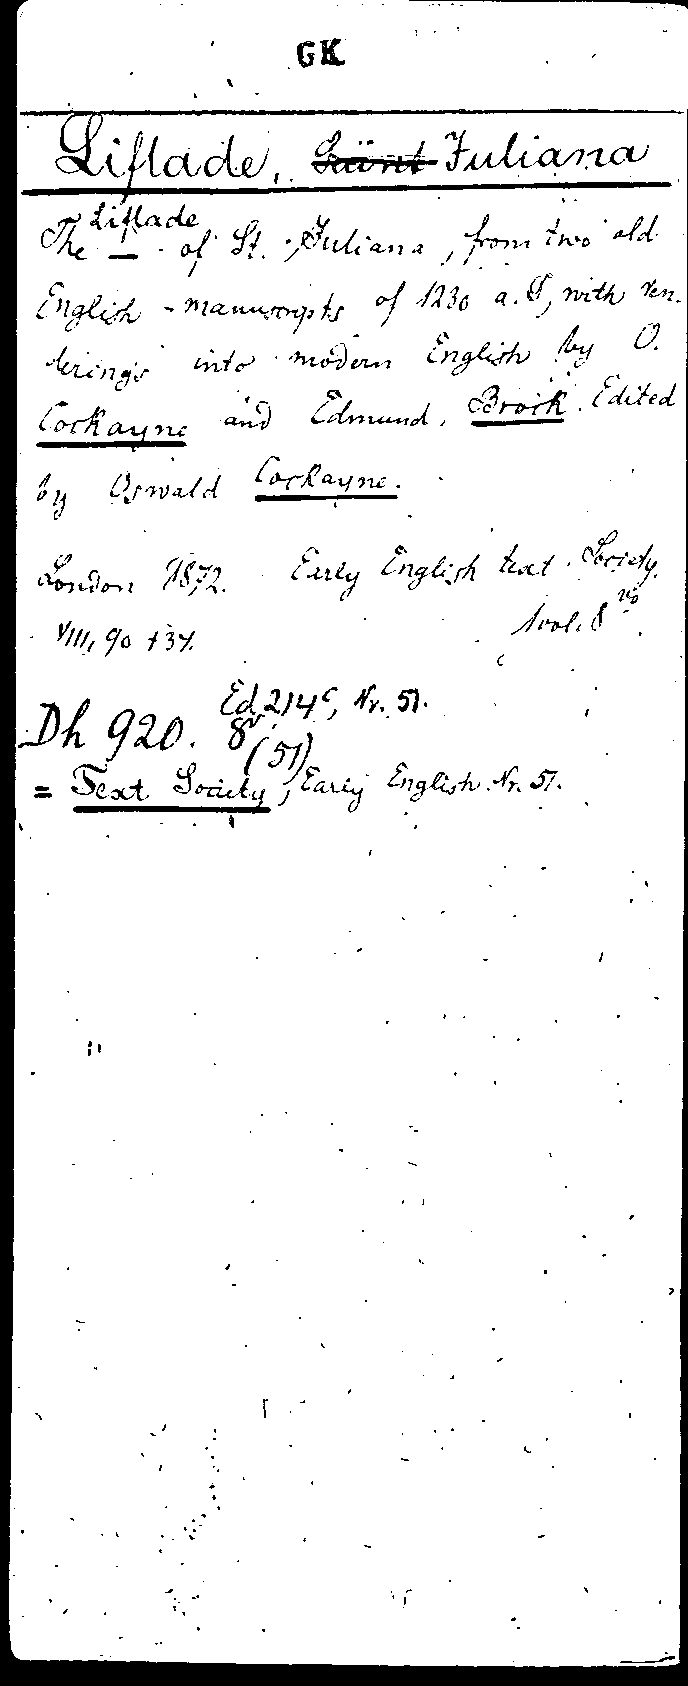 GK
Liflade, Saint Juliana
Liflade
The — of St. Juliana, from two old
English manuscripts of 1230 a. D, with ren-
derings into modern English by O.
Cockayne and Edmund Brock. Edited
by Oswald Cockayne.
London 1872. Early English text Society.
VIII, 90 + 3 1 vol. 8vo.
Ed 214c, Nr. 51.
Dh 920. 8v (51)
= Text Society, Early English Nr. 51.